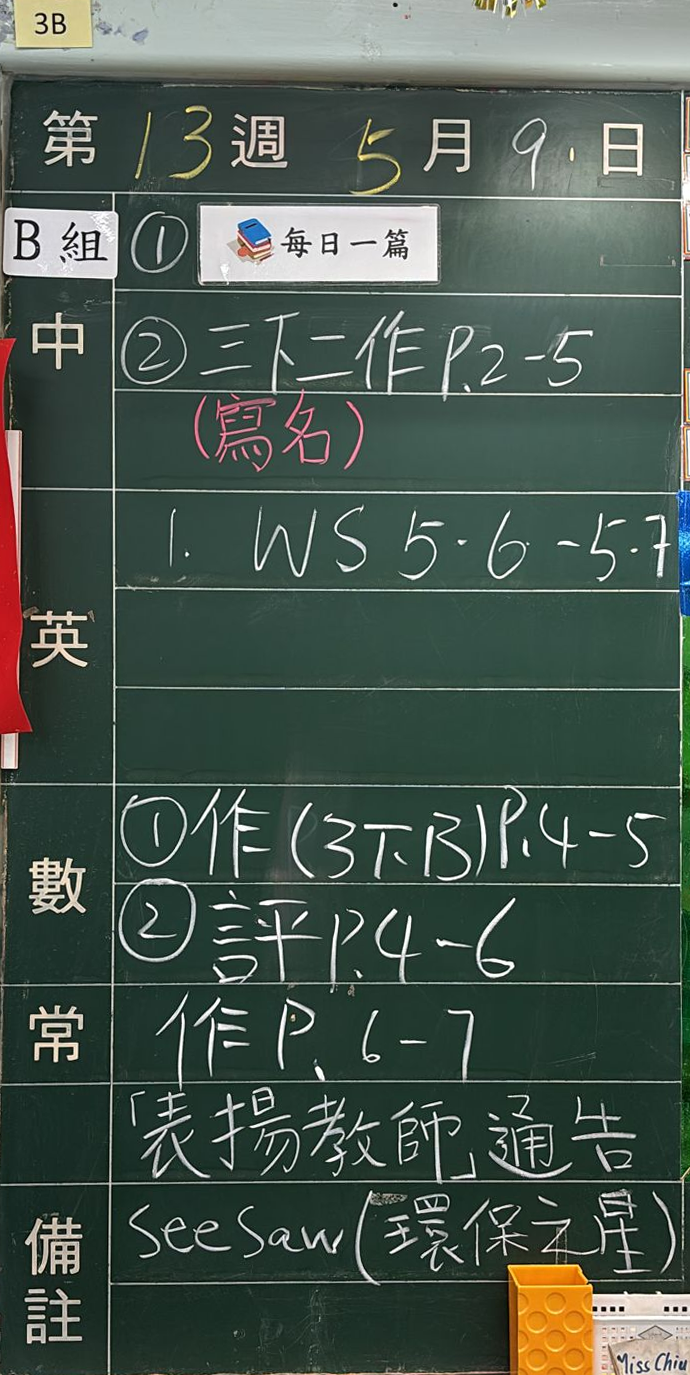 3B
第 13 週 5 月 9 日
B 組 ① 每日一篇
中 ② 三下二作 P.2-5
(寫名)
1. WS 5.6 - 5.7
英
數 ① 作 (3下B) P.4-5
② 評 P.4-6
常 作 P. 6-7
「表揚教師」通告
備註 seesaw (環保之星)
Miss Chiu